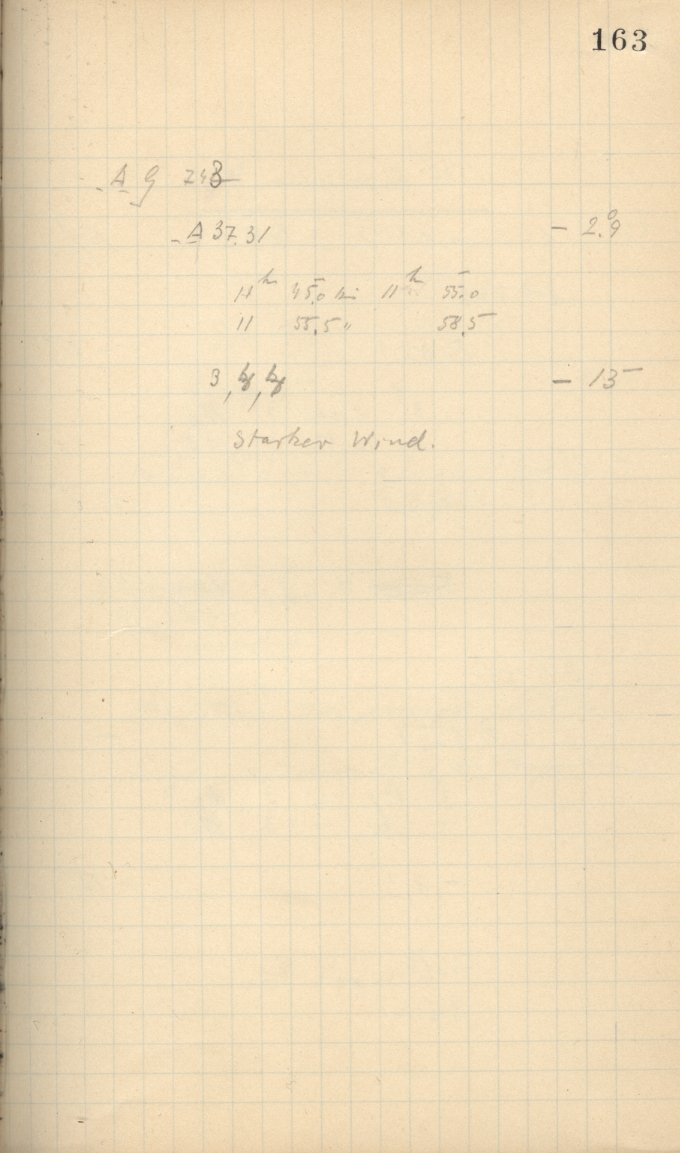 163
A G 243
A 37.31 - 2.°9
11ʰ 45.0 bis 11ʰ 55.0
11 55.5 " 58.5
3, 4, 4 - 15
Starker Wind.